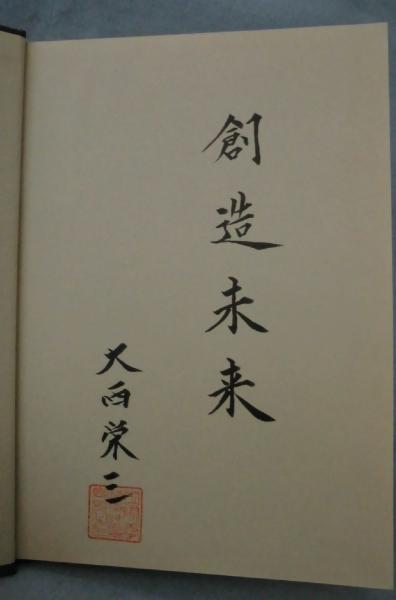 創造未来
大西栄三